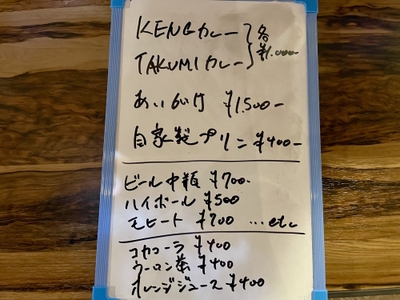 KENGカレー
TAKUMIカレー
各¥1.000-
あいがけ ¥1.500-
自家製プリン ¥400-
ビール中瓶 ¥700-
ハイボール ¥500
モヒート ¥700 ...etc
コカコーラ ¥400
ウーロン茶 ¥400
オレンジジュース ¥400